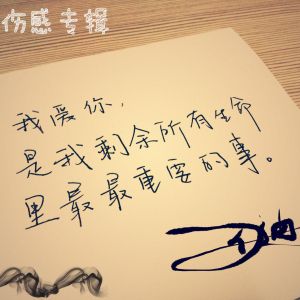 伤感专辑
我爱你，
是我剩余所有生命
里最最最重要的事。